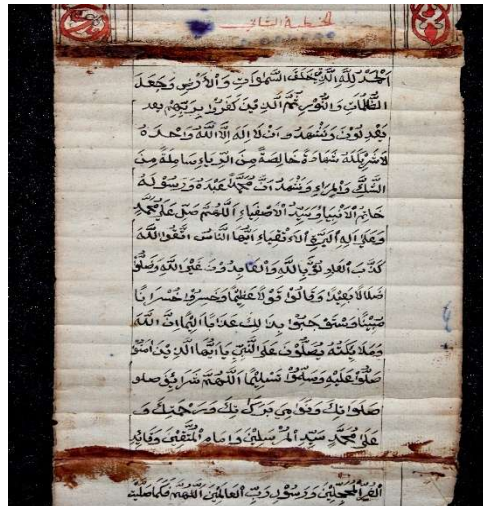 الخطبة الثاني
الحمد لله الذي خلق السموات والارض وجعل
الظلمات والنور ثم الذين كفروا بربهم يعد
يعدلون ونشهد ان لا اله الا الله وحده
لا شريك له شهادة خالصة من الرياء سالمة من
الشك والمراء ونشهد ان محمدا عبده ورسوله
خاتم الانبياء وسيد الاصفياء اللهم صل على محمد
وعلى اله البررة الاتقياء ايها الناس اتقوا الله
كذب بالله والعابدون غير الله وضلوا
ضلالا بعيدا وقالوا قولا عظيما وخسروا خسرانا
مبينا عذابا اليما ان الله
وملائكته يصلون على النبي يا ايها الذين امنوا
صلوا عليه وسلموا تسليما اللهم شرائف صلو
صلواتك ونوامي بركاتك ورحمتك و
على محمد سيد المرسلين وامام المتقين وقايد
الغر المحجلين ورسول رب العالمين اللهم فكما صليت